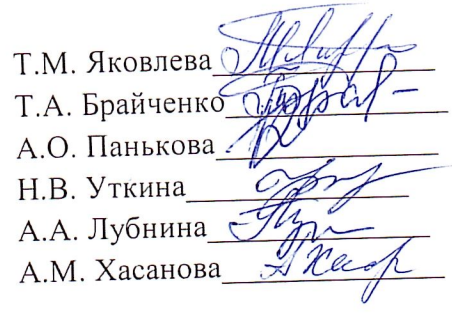 Т.М. Яковлева
Т.А. Брайченко
А.О. Панькова
Н.В. Уткина
А.А. Лубнина
А.М. Хасанова